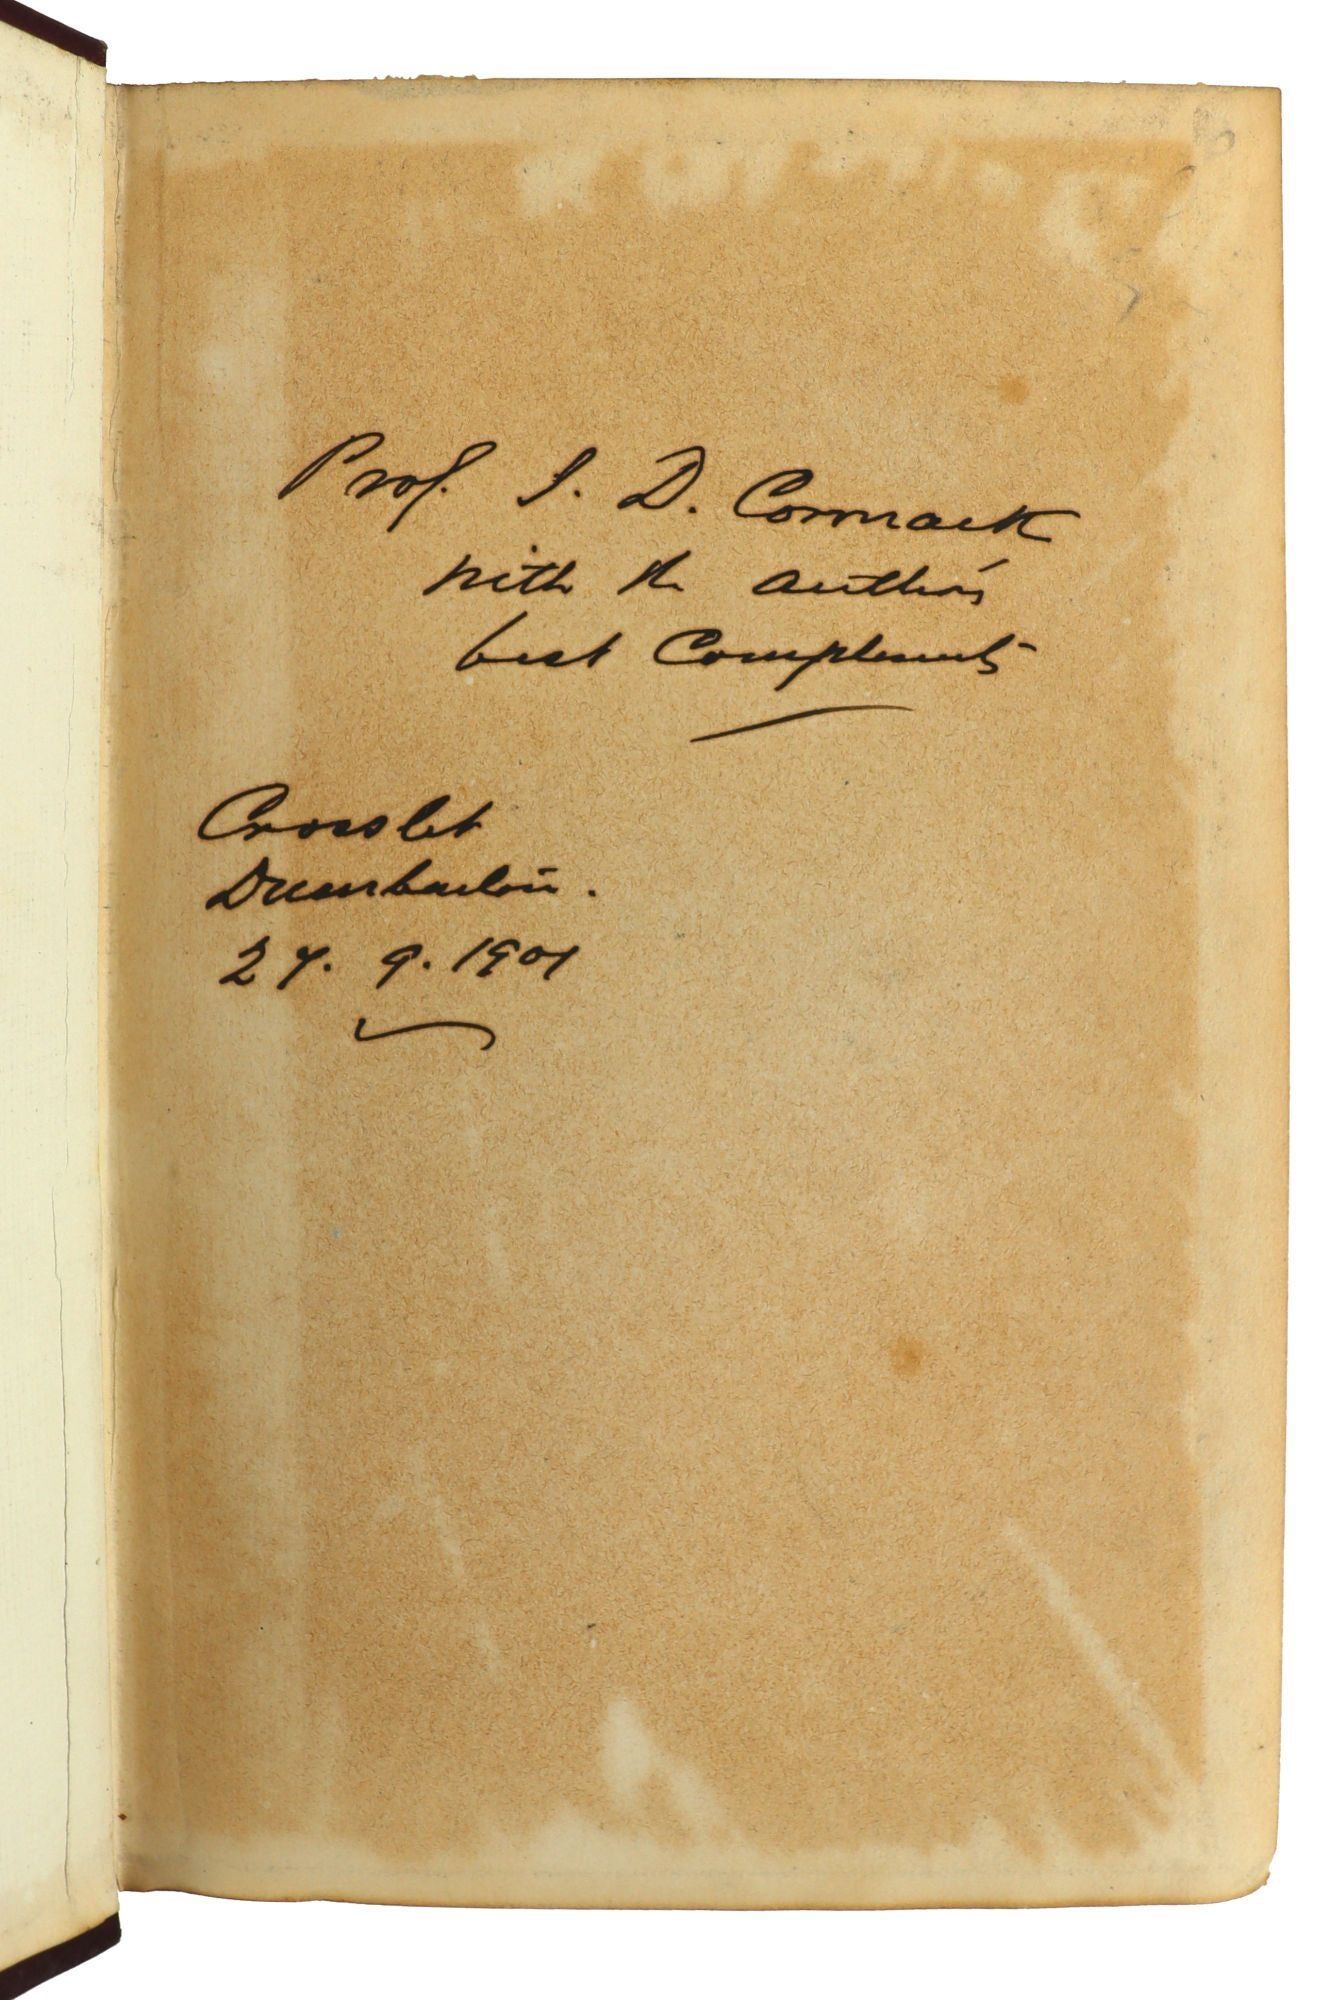 Prof. J. D. Cormack
with the author's
best Compliments
Crosslet
Dumbarton.
27. 9. 1901